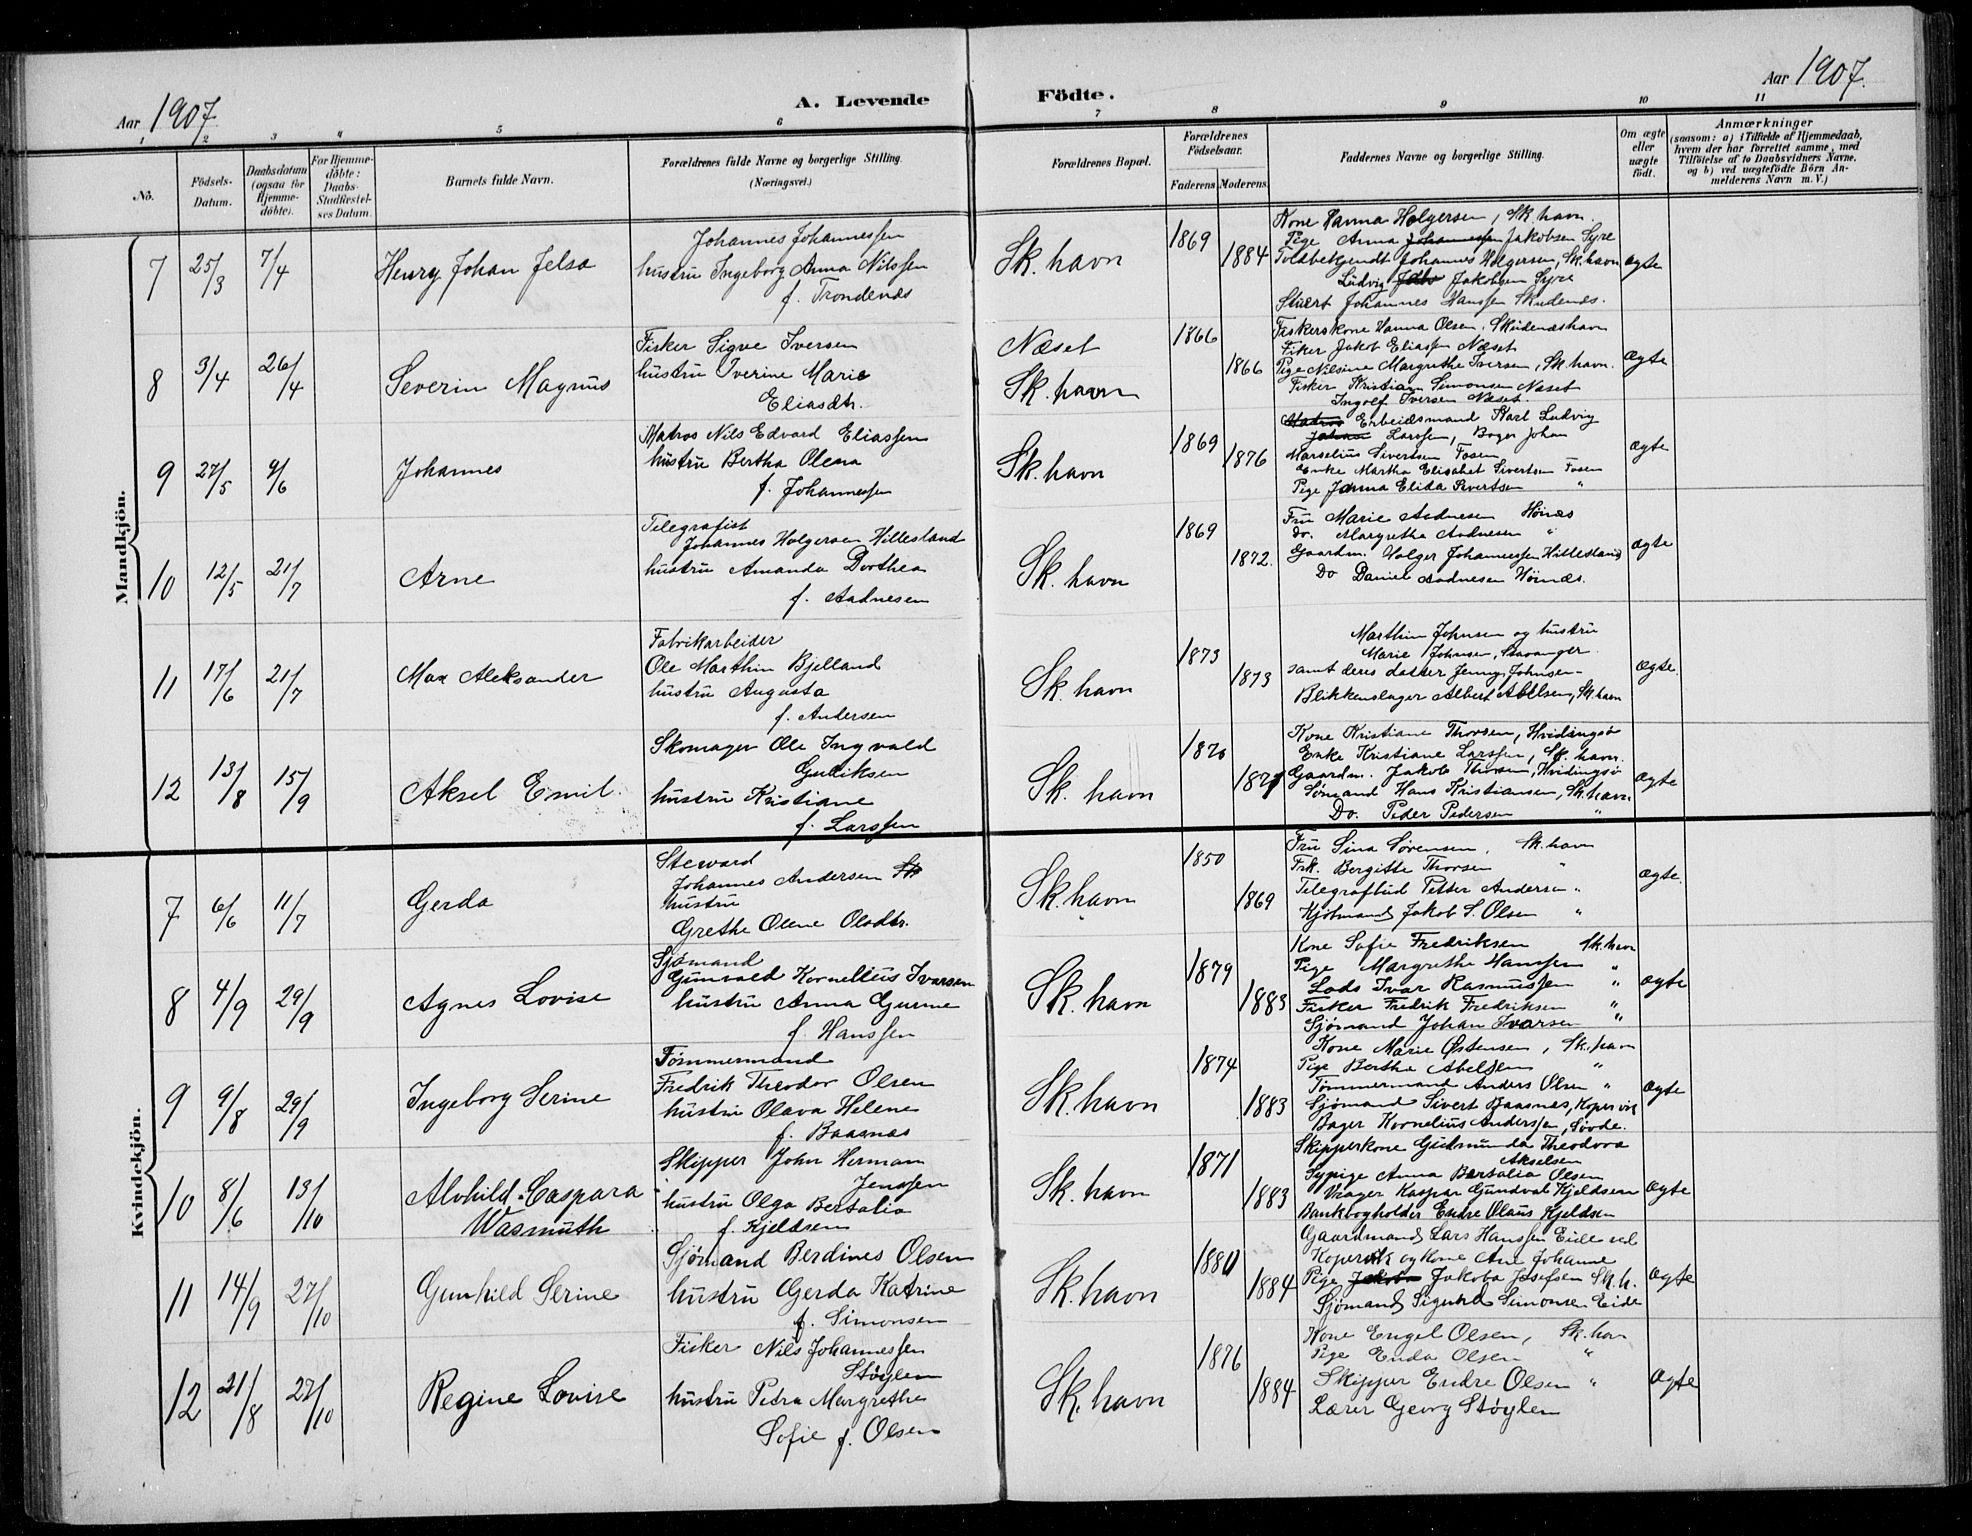 Aar 1907
A. Levende Födte.
Aar 1907.
1 2 3 4 5 6 7 8 9 10 11
No.
Födsels-Datum.
Daabsdatum (ogsaa for Hjemme-döbte).
For Hjemme-döbte: Daabs-Stadfæstel-ses Datum.
Barnets fulde Navn.
Forældrenes fulde Navne og borgerlige Stilling.
(Næringsvei.)
Forældrenes Bopæl.
Forældrenes Födselsaar.
Faderens Moderens
Faddernes Navne og borgerlige Stilling.
Om ægte eller uægte födt.
Anmærkninger
(saasom: a) i Tilfælde af Hjemmedaab,
hvem der har forrettet samme, med
Tilföielse af to Daabsvidners Navne.
og b) ved uægtefödte Börn An-
melderens Navn m. V.)
Mandkjön.
7 25/3 7/4 Henry Johan Jelsa
Johannes Johannessen
hustru Ingeborg Anna Nilssen
f. Trondenes
Sk. havn 1869 1884
Kone Hanna Holgersen, Sk. havn.
Pige Anna Johannessen Jakobsen Syre
Toldbetjendt Johannes Holgersen, Sk. havn
Ludvig Jakobsen Syre
Stuert Johannes Hanssen Skudenes.
ægte
8 3/4 26/4 Severin Magnus
Fisker Sigve Iversen
hustru Iverine Marie
Eliasdtr.
Næset
Sk. havn
1866 1866
Fiskerskone Hanna Olsen, Skudeneshavn
Fiker Jakob Eliassen Næset
Pige Nilsine Margrethe Iversen, Sk. havn.
Fisker Kristian Simonsen Næset
Ingolf Iversen Næset.
Ægte
9 27/5 9/6 Johannes
Matros Nils Edvard Eliassen
hustru Bertha Olena
f. Johannessen
Sk. havn 1869 1876
Matros Erbeidsmand Karl Ludvig
Larssen, Bager Johan
Marselius Sivertsen Fosen
Enke Martha Elisabet Sivertsen Fosen
Pige Janna Elida Sivertsen "
Ægte
10 12/5 21/7 Arne
Telegrafist
Johannes Holgersen Hillesland
hustru Amanda Dorthea
f. Aadnesen
Sk. havn 1869 1872.
Fru Marie Aadnesen Hønæs
Do. Margretha Aadnesen "
Gaardm. Holger Johannessen Hillesland
Do Daniel Aadnesen Hønæs.
ægte
11 17/6 21/7 Max Aleksander
Fabrikarbeider
Ole Marthin Bjelland
hustru Augusta
f. Andersen
Sk. havn 1873 1873
Marthin Johnsen og hustru
Marie Johnsen, Stavanger.
samt deres datter Jenny Johnsen
Blikkenslager Albert Abelsen, Sk. havn
Ægte.
12 13/8 15/9 Aksel Emil.
Skomager Ole Ingvald
Gudiksen
hustru Kristiane
f. Larssen
Sk. havn
Kone Kristiane Thorsen, Hvidingsø
Enke Kristiane Larssen, Sk. havn.
Gaardm. Jakob Thorsen, Hvidingsø
Sømand Hans Kristiansen, Sk. havn.
Do. Peder Pedersen "
Ægte
Kvindekjön.
7 6/6 11/7 Gerda
Steward
Johannes Andersen
hustru
Grethe Olene Olsdtr.
Sk. havn 1850 1869
Fru Sina Sørensen, Sk. havn
Frk. Bergitte Thorsen "
Telegrafbud Petter Andersen "
Kjøbmand Jakob S. Olsen "
Ægte.
8 4/9 29/9 Agnes Lovise
Sjømand
Gunvald Kornelius Ivarsen
hustru Anna Gurine
f. Hanssen
Sk. havn 1879 1883
Kone Sofie Fredriksen Sk. havn
Pige Margrethe Hanssen "
Lods Ivar Rasmussen "
Fisker Fredrik Fredriksen "
Sjømand Johan Ivarsen "
ægte
9 9/8 29/9 Ingeborg Serine
Tømmermand
Fredrik Theodor Olsen
hustru Olava Helene
f. Baasnæs
Sk. havn 1874 1883
Kone Marie Østensen, Sk. havn
Pige Berthe Abelsen "
Tømmermand Anders Olsen "
Sjømand Sivert Baasnæs, Kopervik
Bager Kornelius Anderssen, Søvde.
Ægte
10 8/6 13/10 Alvhild Caspara
Wasmuth
Skipper John Herman
Jenssen
hustru Olga Bertalia
f. Kjeldsen
Sk. havn 1871 1883
Skipperkone Gudmunda Theodora
Akselsen
Sypige Anna Bertalia Olsen
Vrager Kaspar Gundval Kjeldsen
Bankbogholder Endre Olaus Kjeldsen
Ægte
11 14/9 27/10 Gunhild Serine
Sjømand Berdines Olsen
hustru Gerda Katrine
f. Simonsen
Sk. havn 1880 1884
Gaardmand Lars Hanssen Eide ved
Kopervik og Kone Ane Johanne
Pige Jakoba Josefsen Sk. h.
Sjømand Sigurd Simonsen Eide
Ægte
12 21/8 27/10 Regine Lovise
Fisker Nils Johannessen
Støylen
hustru Petra Margrethe
Sofie f. Olsen
Sk. havn 1876 1884
Kone Engel Olsen, Sk. havn
Pige Enda Olsen "
Skipper Endre Olsen "
Lærer Georg Støylen
Ægte